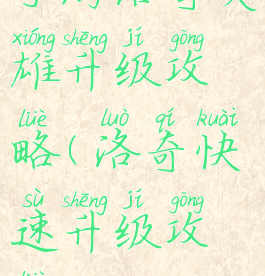 xióng shēng jí gōng
雄升级攻
lüè luò qí kuài
略(洛奇快
sù shēng jí gōng
速升级攻